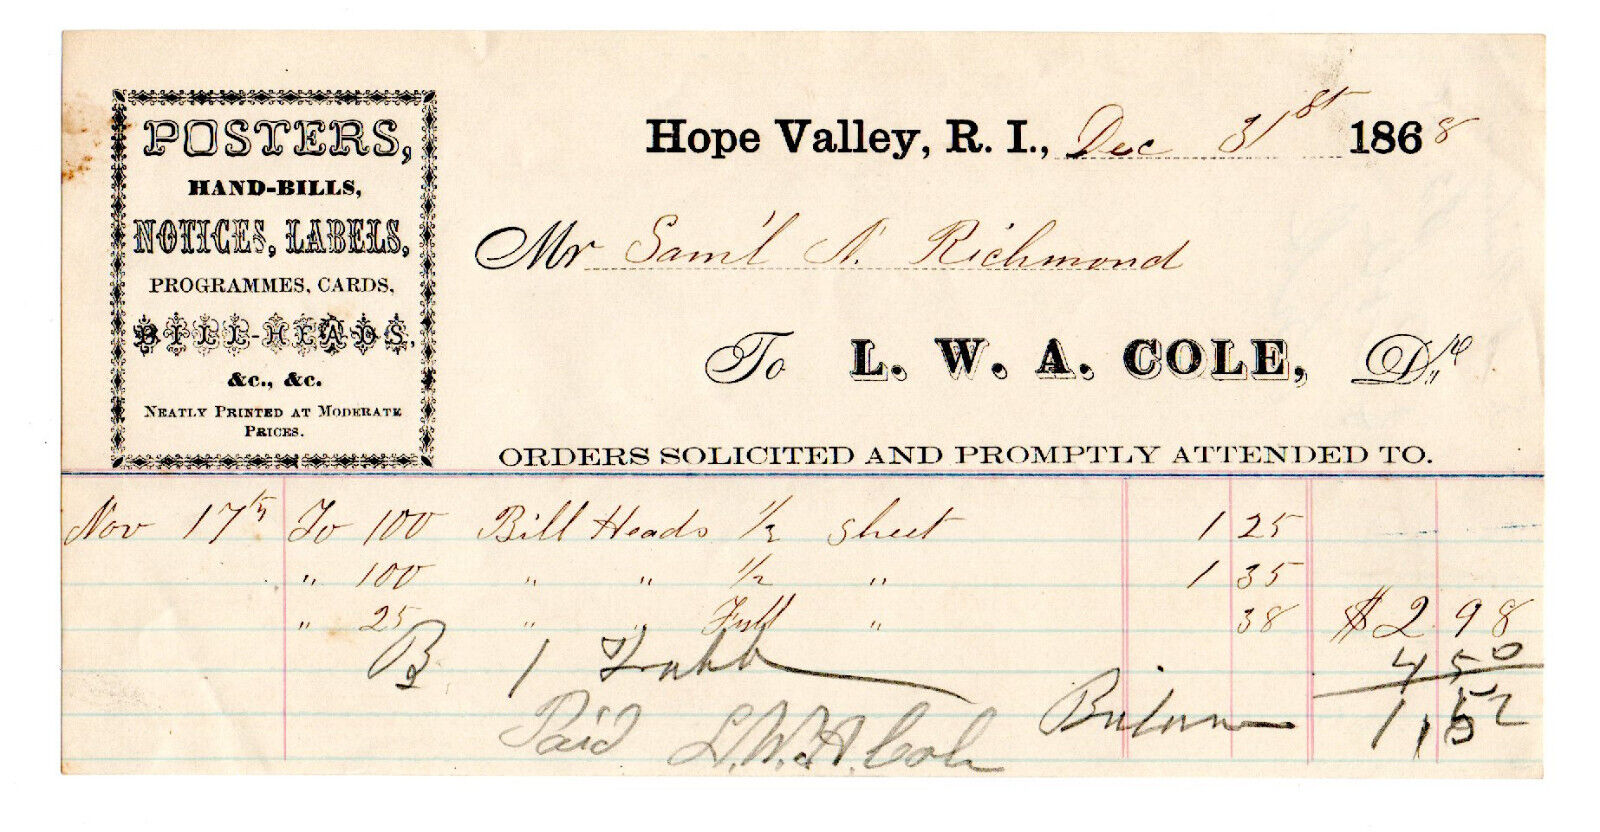 POSTERS,
HAND-BILLS,
NOTICES, LABELS,
PROGRAMMES, CARDS,
BILL-HEADS,
&c., &c.
NEATLY PRINTED AT MODERATE
PRICES.
Hope Valley, R. I., Dec 31st 1868
Mr Sam'l N. Richmond
To L. W. A. COLE, Dr
ORDERS SOLICITED AND PROMPTLY ATTENDED TO.
Nov 17th To 100 Bill Heads 1/2 Sheet 1 25
" 100 " " 1/2 " 1 35
" 25 " " Full " 38 $2.98
B 1 4 50
Paid L. W. A. Cole 1,52